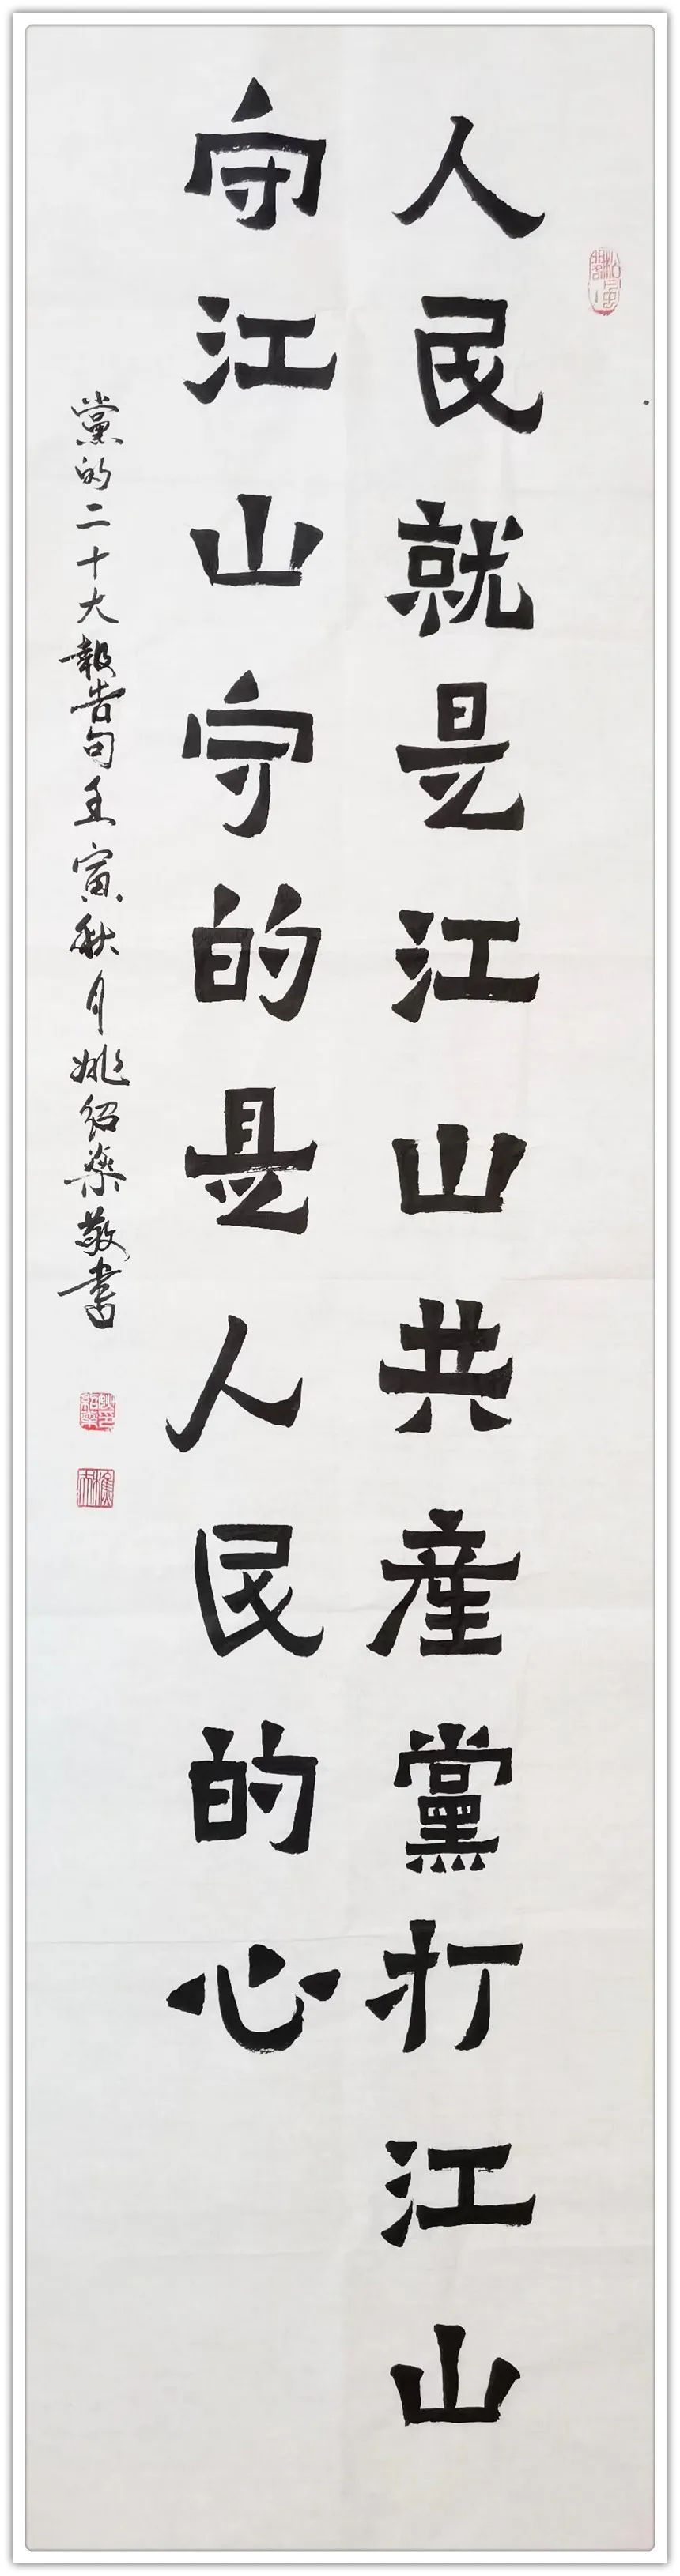 人民就是江山共産黨打江山
守江山守的是人民的心
黨的二十大報告句壬寅秋月姚紹藥敬書